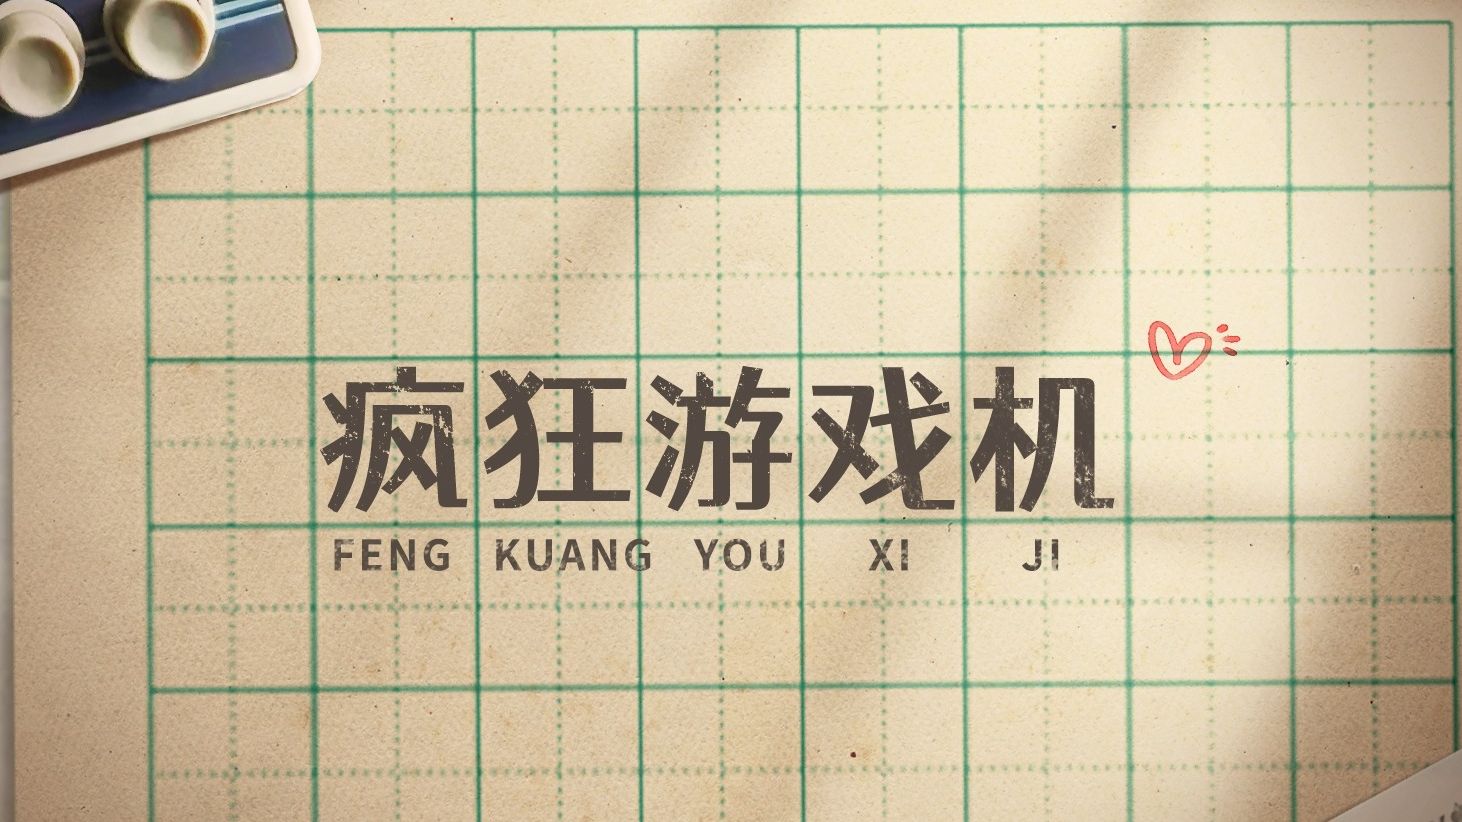 疯狂游戏机
FENG KUANG YOU XI JI